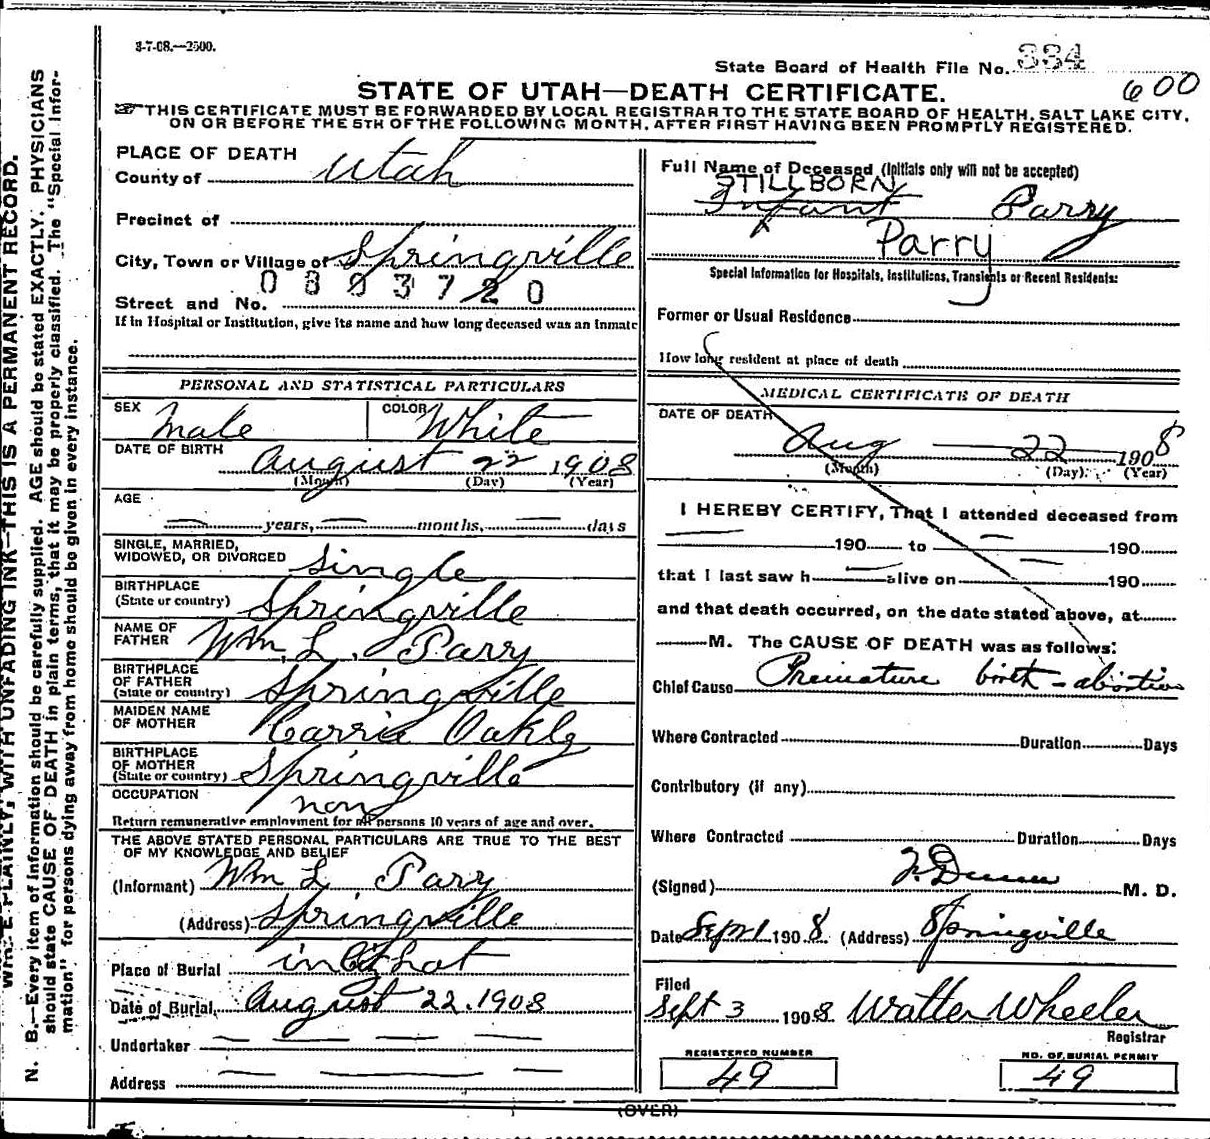 3-7-08.—2500.
State Board of Health File No. 334
600
STATE OF UTAH—DEATH CERTIFICATE.
☞THIS CERTIFICATE MUST BE FORWARDED BY LOCAL REGISTRAR TO THE STATE BOARD OF HEALTH, SALT LAKE CITY,
ON OR BEFORE THE 5TH OF THE FOLLOWING MONTH, AFTER FIRST HAVING BEEN PROMPTLY REGISTERED.
N. B.—Every item of information should be carefully supplied. AGE should be stated EXACTLY. PHYSICIANS
should state CAUSE OF DEATH in plain terms, that it may be properly classified. The "Special Infor-
mation" for persons dying away from home should be given in every instance.
PLAINLY, WITH UNFADING INK—THIS IS A PERMANENT RECORD.
PLACE OF DEATH
County of Utah
Precinct of
City, Town or Village of Springville
0 8 9 3 7 2 0
Street and No.
If in Hospital or Institution, give its name and how long deceased was an inmate
PERSONAL AND STATISTICAL PARTICULARS
SEX Male COLOR White
DATE OF BIRTH August 22 1908
(Month) (Day) (Year)
AGE
— years, — months, — days
SINGLE, MARRIED,
WIDOWED, OR DIVORCED Single
BIRTHPLACE
(State or country) Springville
NAME OF
FATHER Wm. L. Parry
BIRTHPLACE
OF FATHER
(State or country) Springville
MAIDEN NAME
OF MOTHER Carrie Oakly
BIRTHPLACE
OF MOTHER
(State or country) Springville
OCCUPATION non
Return remunerative employment for all persons 10 years of age and over.
THE ABOVE STATED PERSONAL PARTICULARS ARE TRUE TO THE BEST
OF MY KNOWLEDGE AND BELIEF
(Informant) Wm L Parry
(Address) Springville
Place of Burial in
Date of Burial, August 22. 1908
Undertaker — — — —
Address — — —
Full Name of Deceased (Initials only will not be accepted)
STILLBORN
Infant Parry
Parry
Special Information for Hospitals, Institutions, Transients or Recent Residents:
Former or Usual Residence
How long resident at place of death
MEDICAL CERTIFICATE OF DEATH
DATE OF DEATH
Aug — 22 — 1908
(Month) (Day) (Year)
I HEREBY CERTIFY, That I attended deceased from
— 190 to — 190
that I last saw h — alive on — 190
and that death occurred, on the date stated above, at
M. The CAUSE OF DEATH was as follows:
Chief Cause Premature birth - abortion
Where Contracted Duration Days
Contributory (if any)
Where Contracted Duration Days
(Signed) M. D.
Date Sept 1 1908 (Address) Springville
Filed
Sept 3 1908 Walter Wheeler
Registrar
REGISTERED NUMBER
49
NO. OF BURIAL PERMIT
49
(OVER)